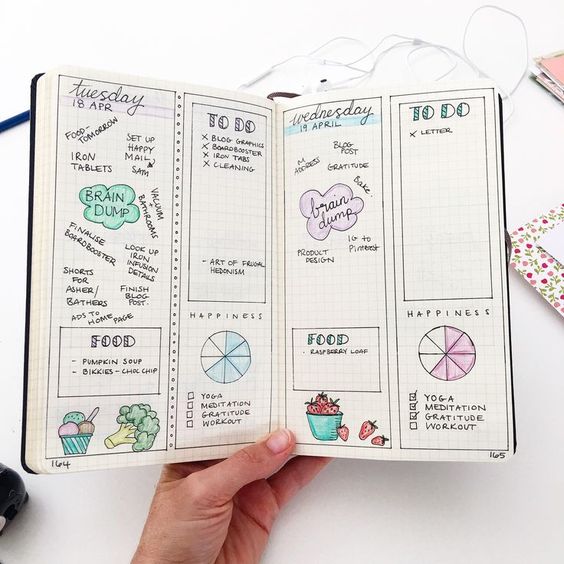 tuesday
18 APR
FOOD
TOMORROW
SET UP
HAPPY
MAIL
SAM
IRON
TABLETS
BRAIN
DUMP
VACUUM
+
BATHROOMS
FINALISE
BOARDBOOSTER
LOOK UP
IRON
INFUSION
DETAILS
SHORTS
FOR
ASHER/
BATHERS
FINISH
BLOG
POST.
ADS TO
HOME PAGE
FOOD
- PUMPKIN SOUP
- BIKKIES - CHOC CHIP
164
TO DO
X BLOG GRAPHICS
X BOARDBOOSTER
X IRON TABS
X CLEANING
- ART OF FRUGAL
HEDONISM
HAPPINESS
YOGA
MEDITATION
GRATITUDE
WORKOUT
wednesday
19 APRIL
BLOG
POST
M
ADDRESS
GRATITUDE
Bake.
brain
dump
PRODUCT
DESIGN
IG to
Pinterest
FOOD
- RASPBERRY LOAF
TO DO
X LETTER
HAPPINESS
YOGA
MEDITATION
GRATITUDE
WORKOUT
165